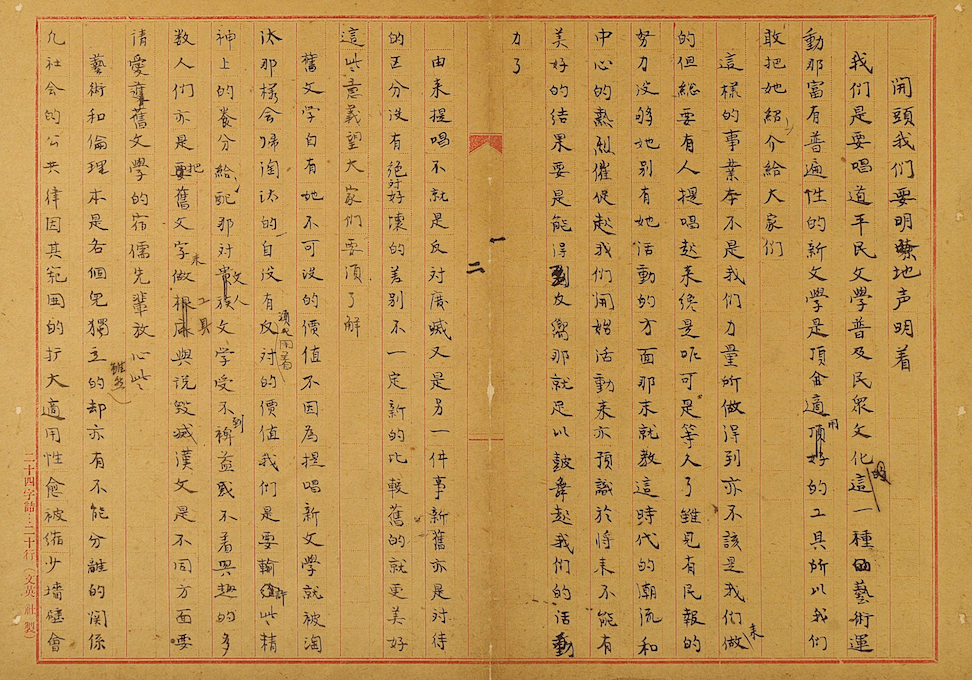 開頭我們要明瞭地声明着
我們是要唱道平民文學普及民衆文化這一種的藝術運
動那富有普遍性的新文學是頂合適用的工具所以我們
敢把她紹介給大家們
這樣的事業本不是我們力量所做得到亦不該是我們做來
的但總要有人提唱起來纔是呢可是等人了雖見有民報的
努力没够她別有她活動的方面那末就教這時代的潮流和
中心的熱烈催促起我們開始活動來亦預識於將來不能有
美好的結果要是能得到友嚮那就足以鼓舞起我們的活動
力了
一
二
由來提唱不就是反对廃滅又是另一件事新舊亦是対待
的区分没有絶対好壊的差別不一定新的比較舊的就更美好
這些意義望大家們要須了解
舊文學自有她不可没的價值不因為提唱新文學就被淘
汰那樣会帰淘汰的自没有反対的價值我們是要輸些精
神上的養分給配那対文人文學受不到裨益感不着興趣的多
数人們亦是把舊文字做來工具與説毀滅漢文是不同方面要
請愛舊文學的宿儒先輩放心些
藝術和倫理本是各個児獨立的雖然却亦有不能分離的関係
九社会的公共律因其範囲的扩大適用性愈被縮少墻壁會
二十四字詰…二十行(文英社製)